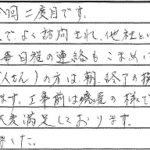 今回二度目です。
でよく訪問され、他社とい
毎日程の連絡もこまめい
人さん)の方は朝、終了の挨
ます。工事前は威産の様で
大変満足しております。
した。